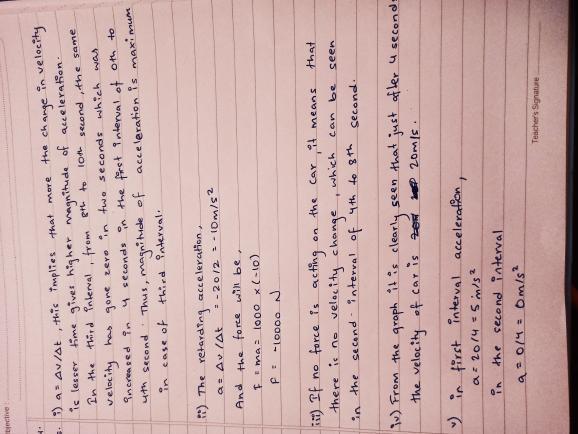 bjective :
i) a = Δv/Δt , this implies that more the change in velocity
is lesser time gives higher magnitude of acceleration.
In the third interval, from 8th to 10th second, the same
velocity has gone zero in two seconds which was
increased in 4 seconds in the first interval of 0th to
4th second. Thus, magnitude of acceleration is maximum
in case of third interval.
ii) The retarding acceleration,
a = Δv/Δt = -20/2 = -10m/s²
And the force will be,
F = ma = 1000 x (-10)
F = -10000 N
iii) If no force is acting on the car it means that
there is no velocity change, which can be seen
in the second interval of 4th to 8th second.
iv) From the graph it is clearly seen that just after 4 seconds
the velocity of car is 20m/s.
v) in first interval acceleration,
a = 20/4 = 5 m/s²
in the second interval
a = 0/4 = 0m/s²
Teacher's Signature